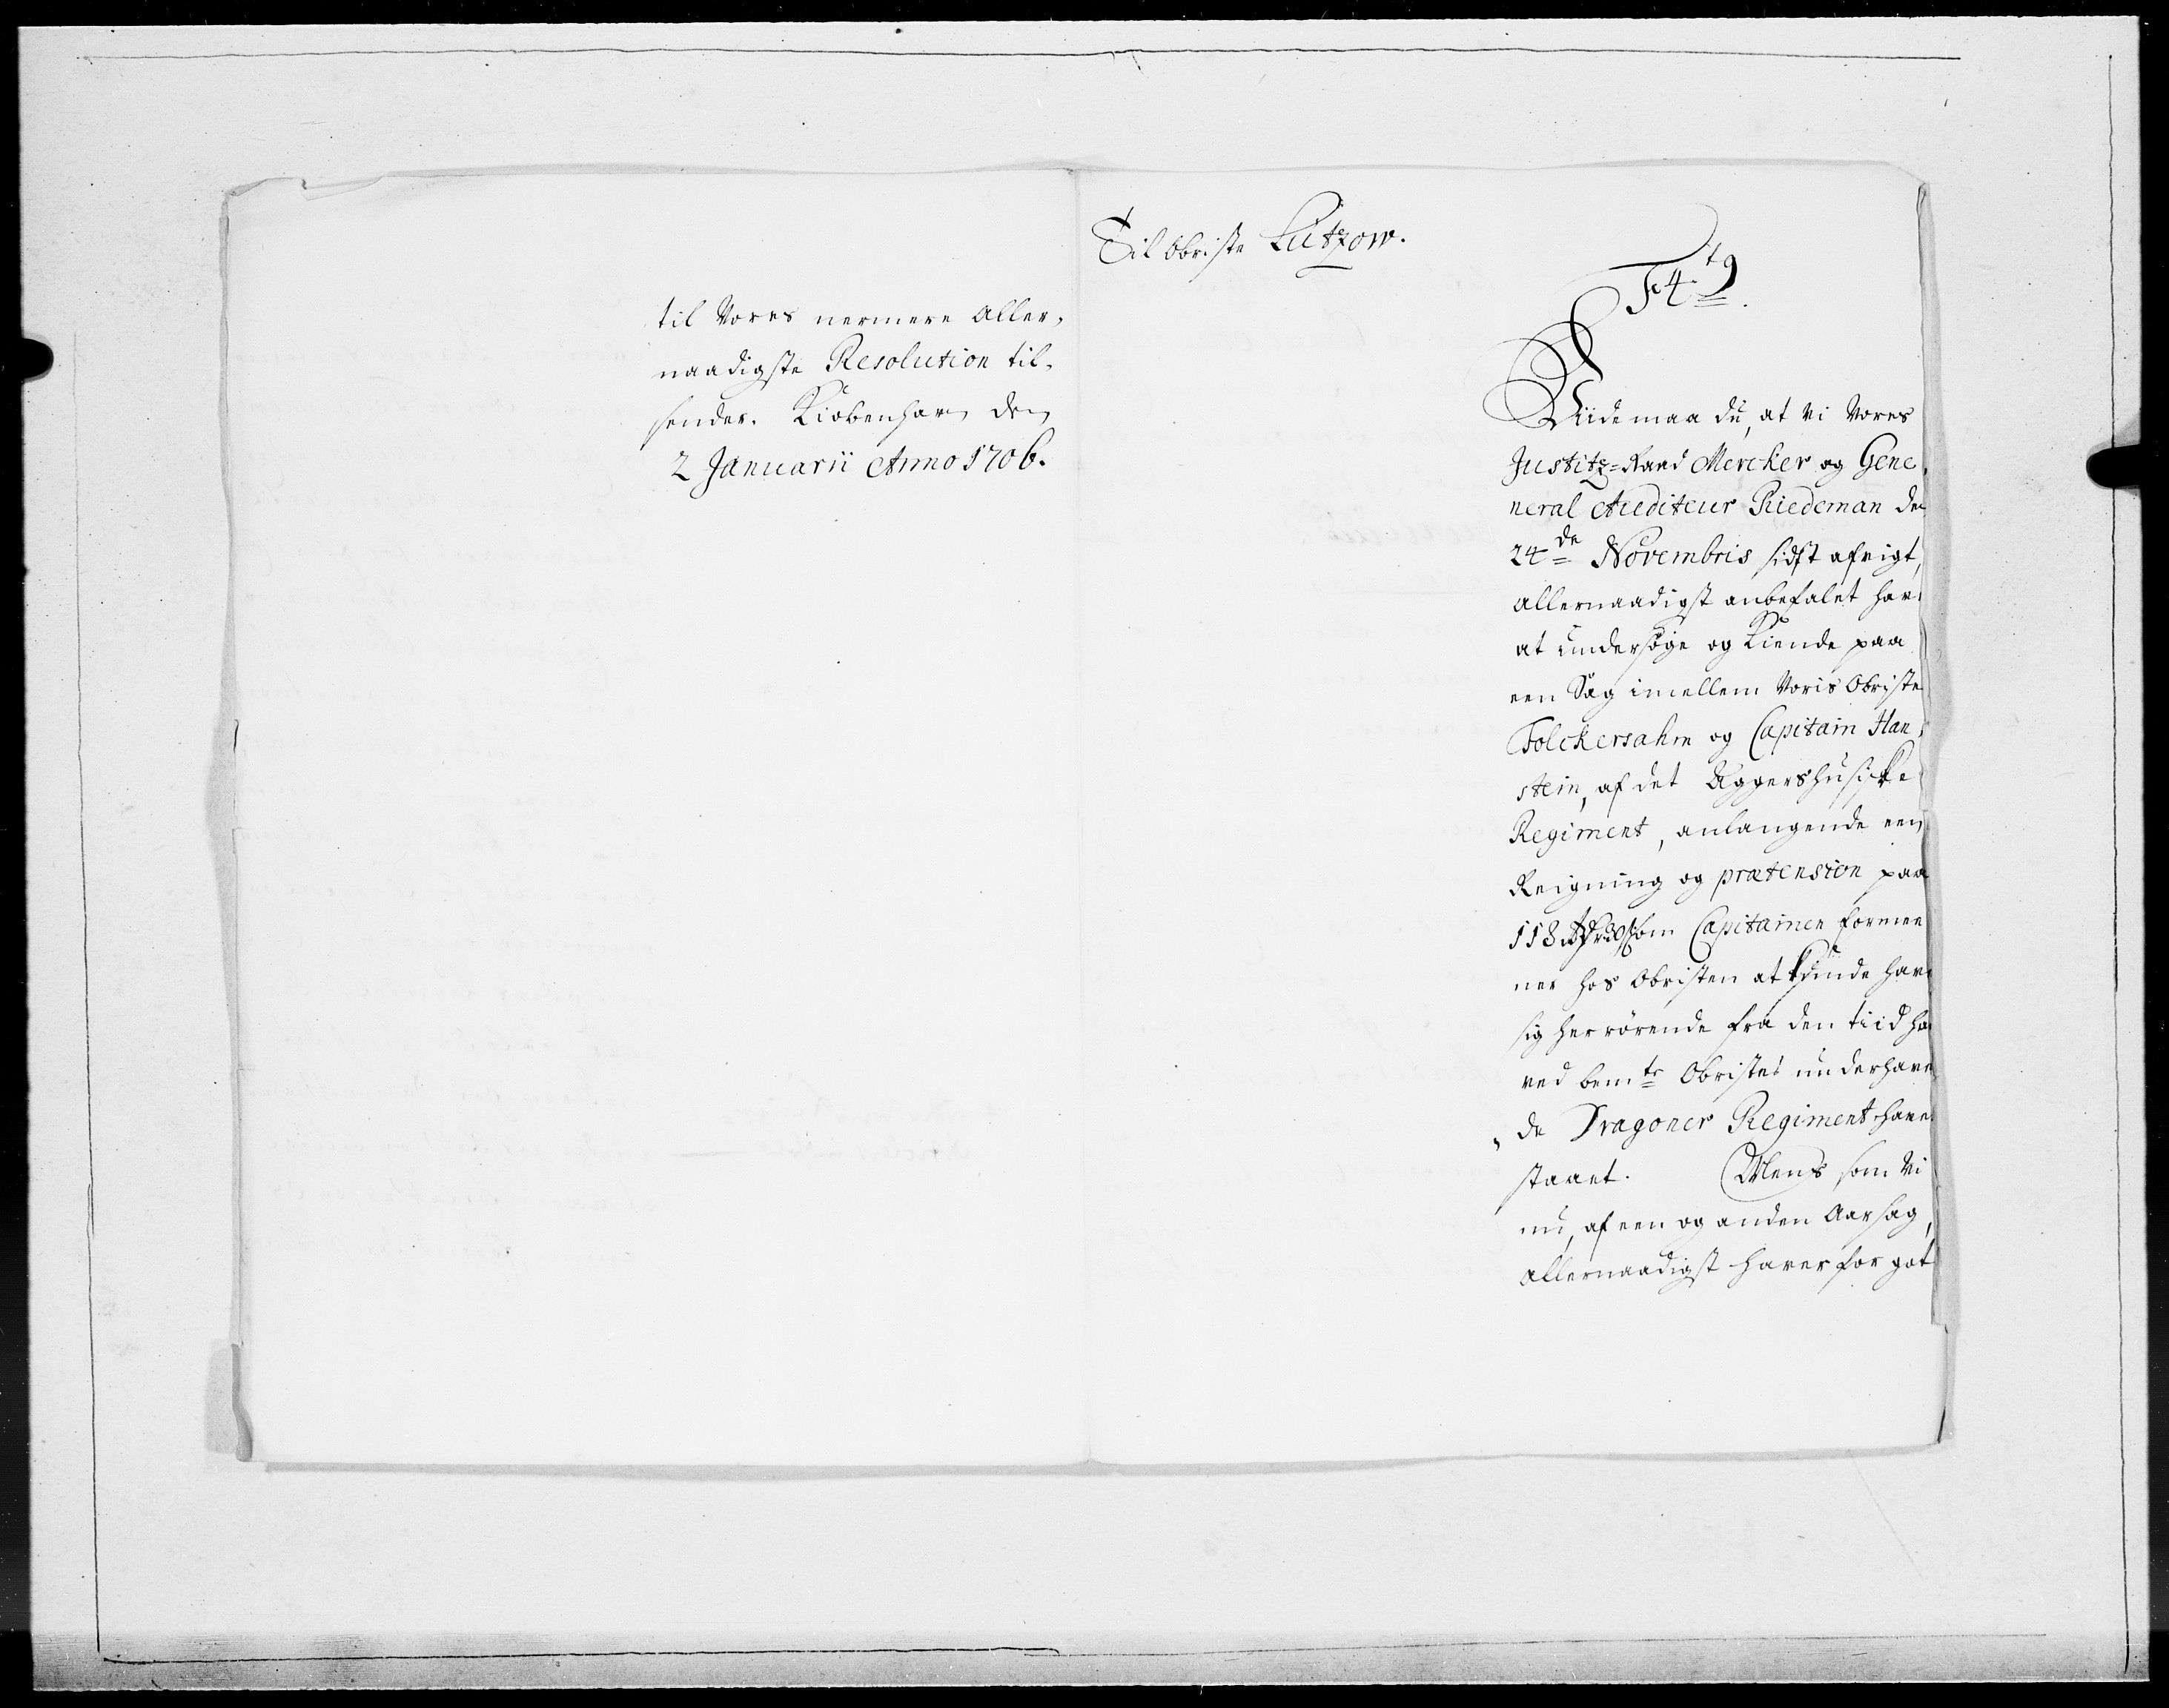 til Vores nermere Aller,
naadigste Resolution til,
sendes. Kiøbenhavn den
2 Januarii Anno 1706.
Til Obriste Lützow.
F4tg.
Viide maa du, at vi Vores
Justitz=Raad Mercker og Gene,
neral Auditeur Riedeman den
24de Novembris sidst afvigt,
allernaadigst anbefalet har
at undersøge og Kiende paa
een Sag imellem Voris Obriste
Folckersahm og Capitain Han,
stein, af det Aggershusiske
Regiment, anlangende een
Reigning og prætension paa
118 som Capitainen formee
ner hos Obristen at kunde have
sig herrørende fra den tiid ha
ved bemte Obristes underhave
de Dragoner Regiment have
staaet. Mens som Vi
nu, af een og anden Aarsag,
allernaadigst haver for got